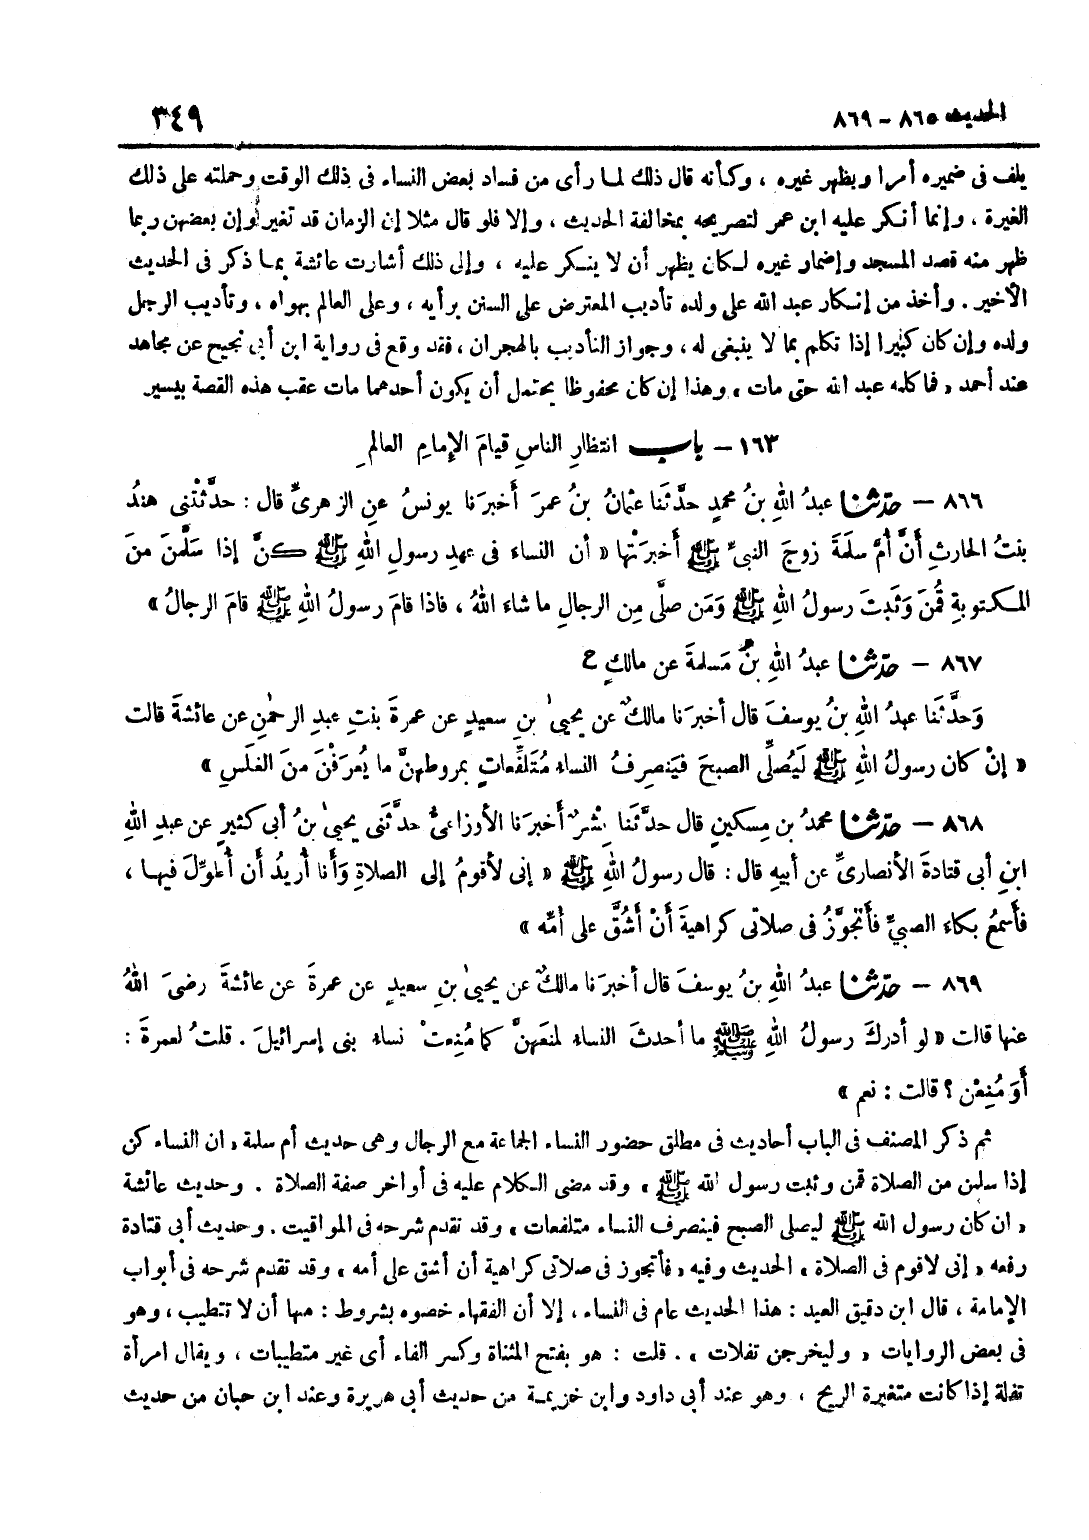 الحديث ٨٦٥ - ٨٦٩
٣٤٩
يلف فى ضميره أمرا ويظهر غيره ، وكأنه قال ذلك لما رأى من فساد بعض النساء فى ذلك الوقت وحملته على ذلك
الغيرة ، وإنما أنكر عليه ابن عمر لتصريحه بمخالفة الحديث ، وإلا فلو قال مثلا إن الزمان قد تغير وإن بعضهن ربما
ظهر منه قصد المسجد وإضمار غيره لكان يظهر أن لا ينكر عليه ، وإلى ذلك أشارت عائشة بما ذكر فى الحديث
الأخير . وأخذ من إنكار عبد الله على ولده تأديب المعترض على السنن برأيه ، وعلى العالم بهواه ، وتأديب الرجل
ولده وإن كان كبيرا إذا تكلم بما لا ينبغى له ، وجواز التأديب بالهجران ، فقد وقع فى رواية ابن أبى نجيح عن مجاهد
عند أحمد « فما كلمه عبد الله حتى مات » وهذا إن كان محفوظا يحتمل أن يكون أحدهما مات عقب هذه القصة بيسير
١٦٣ - باب انتظارِ الناسِ قيامَ الإمامِ العالمِ
٨٦٦ - حدّثنا عبدُ اللهِ بنُ محمدٍ حدَّثَنا عثمانُ بنُ عمرَ أَخبرَنا يونسُ عنِ الزهرىِّ قال : حدَّثَتْنى هندُ
بنتُ الحارثِ أنَّ أمَّ سلَمَةَ زوجَ النبىِّ ﷺ أَخبرَتْها « أن النساءَ فى عهدِ رسولِ اللهِ ﷺ كنَّ إذا سَلَّمنَ منَ
المكتوبةِ قُمنَ وَثَبتَ رسولُ اللهِ ﷺ وَمَن صلَّى مِن الرجالِ ما شاءَ اللهُ ، فاذا قامَ رسولُ اللهِ ﷺ قامَ الرجالُ »
٨٦٧ - حدّثنا عبدُ اللهِ بنُ مَسلمةَ عن مالكٍ ح
وَحدَّثَنا عبدُ اللهِ بنُ يوسفَ قال أخبرَنا مالكٌ عن يحيىٰ بنِ سعيدٍ عن عمرةَ بنتِ عبدِ الرحمٰنِ عن عائشةَ قالت
« إنْ كان رسولُ اللهِ ﷺ لَيُصلِّى الصبحَ فيَنصرِفُ النساءُ مُتَلفِّعاتٍ بمروطهنَّ ما يُعرَفْنَ منَ الغلَسِ »
٨٦٨ - حدّثنا محمدُ بن مِسكينٍ قال حدَّثَنا بِشرٌ أخبرَنا الأوزاعىُّ حدَّثَنى يحيىٰ بنُ أبى كثيرٍ عن عبدِ اللهِ
ابنِ أبى قتادةَ الأنصارىِّ عن أبيهِ قال : قال رسولُ اللهِ ﷺ « إنى لأقومُ إلى الصلاةِ وَأنا أُريدُ أن أُطوِّلَ فيها ،
فأَسمَعُ بكاءَ الصبيِّ فأَتجوَّزُ فى صلاتى كراهيةَ أنْ أَشُقَّ على أُمِّه »
٨٦٩ - حدّثنا عبدُ اللهِ بنُ يوسفَ قال أخبرَنا مالكٌ عن يحيىٰ بنِ سعيدٍ عن عمرةَ عن عائشةَ رضىَ اللهُ
عنها قالت « لو أدركَ رسولُ اللهِ ﷺ ما أحدثَ النساءُ لمنعَهنَّ كما مُنِعتْ نساءُ بنى إسرائيلَ . قلتُ لعمرةَ :
أَوَ مُنِعْنَ ؟ قالت : نعم »
ثم ذكر المصنف فى الباب أحاديث فى مطلق حضور النساء الجماعة مع الرجال وهى حديث أم سلمة « ان النساء كن
إذا سلمن من الصلاة قمن وثبت رسول الله ﷺ » وقد مضى الكلام عليه فى أواخر صفة الصلاة . وحديث عائشة
« ان كان رسول الله ﷺ ليصلى الصبح فينصرف النساء متلفعات » وقد تقدم شرحه فى المواقيت . وحديث أبى قتادة
رفعه « إنى لاقوم فى الصلاة » الحديث وفيه « فأتجوز فى صلاتى كراهية أن أشق على أمه » وقد تقدم شرحه فى أبواب
الإمامة ، قال ابن دقيق العيد : هذا الحديث عام فى النساء ، إلا أن الفقهاء خصوه بشروط : منها أن لا تتطيب ، وهو
فى بعض الروايات « وليخرجن تفلات » . قلت : هو بفتح المثناة وكسر الفاء أى غير متطيبات ، ويقال امرأة
تفلة إذا كانت متغيرة الريح ، وهو عند أبى داود وابن خزيمة من حديث أبى هريرة وعند ابن حبان من حديث